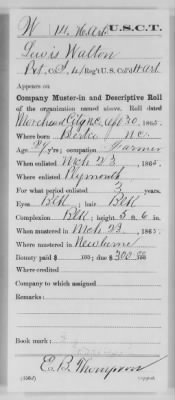 W 14 H. Art. U.S.C.T.
Lewis Walton
Pvt, Co. , Reg't U.S. Col'd H. Art.
Appears on
Company Muster-in and Descriptive Roll
of the organization named above. Roll dated
Morehead City N.C. 1865.
Where born Bertie N.C.
Age y'rs; occupation Farmer
When enlisted Mch 23, 1865.
Where enlisted Plymouth
For what period enlisted 3 years.
Eyes Blk; hair Blk
Complexion Blk; height 5 ft. 6 in.
When mustered in Mch 23, 1865.
Where mustered in Newberne
Bounty paid $ 100; due $ 300 100
Where credited
Company to which assigned
Remarks:
Book mark:
E. B. Thompson
(356d) Copyist.